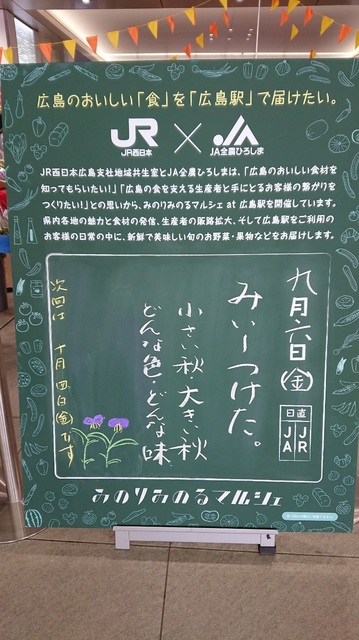 広島のおいしい「食」を「広島駅」で届けたい。
JR
JR西日本
×
JA
JA全農ひろしま
JR西日本広島支社地域共生室とJA全農ひろしまは、「広島のおいしい食材を
知ってもらいたい!」「広島の食を支える生産者と手にとるお客様の繋がりを
つくりたい!」との思いから、みのりみのるマルシェ at 広島駅を開催しています。
県内各地の魅力と食材の発信、生産者の販路拡大、そして広島駅をご利用の
お客様の日常の中に、新鮮で美味しい旬のお野菜・果物などをお届けします。
九月六日(金)
日直
JR
JA
みぃーつけた。
小さい秋、大きい秋
どんな色・どんな味
次回は 十月四日(金)です
みのりみのるマルシェ